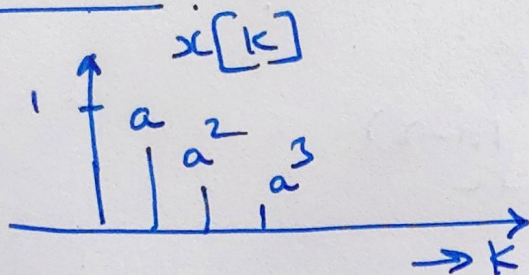 x[k]
1
a
a²
a³
→ k